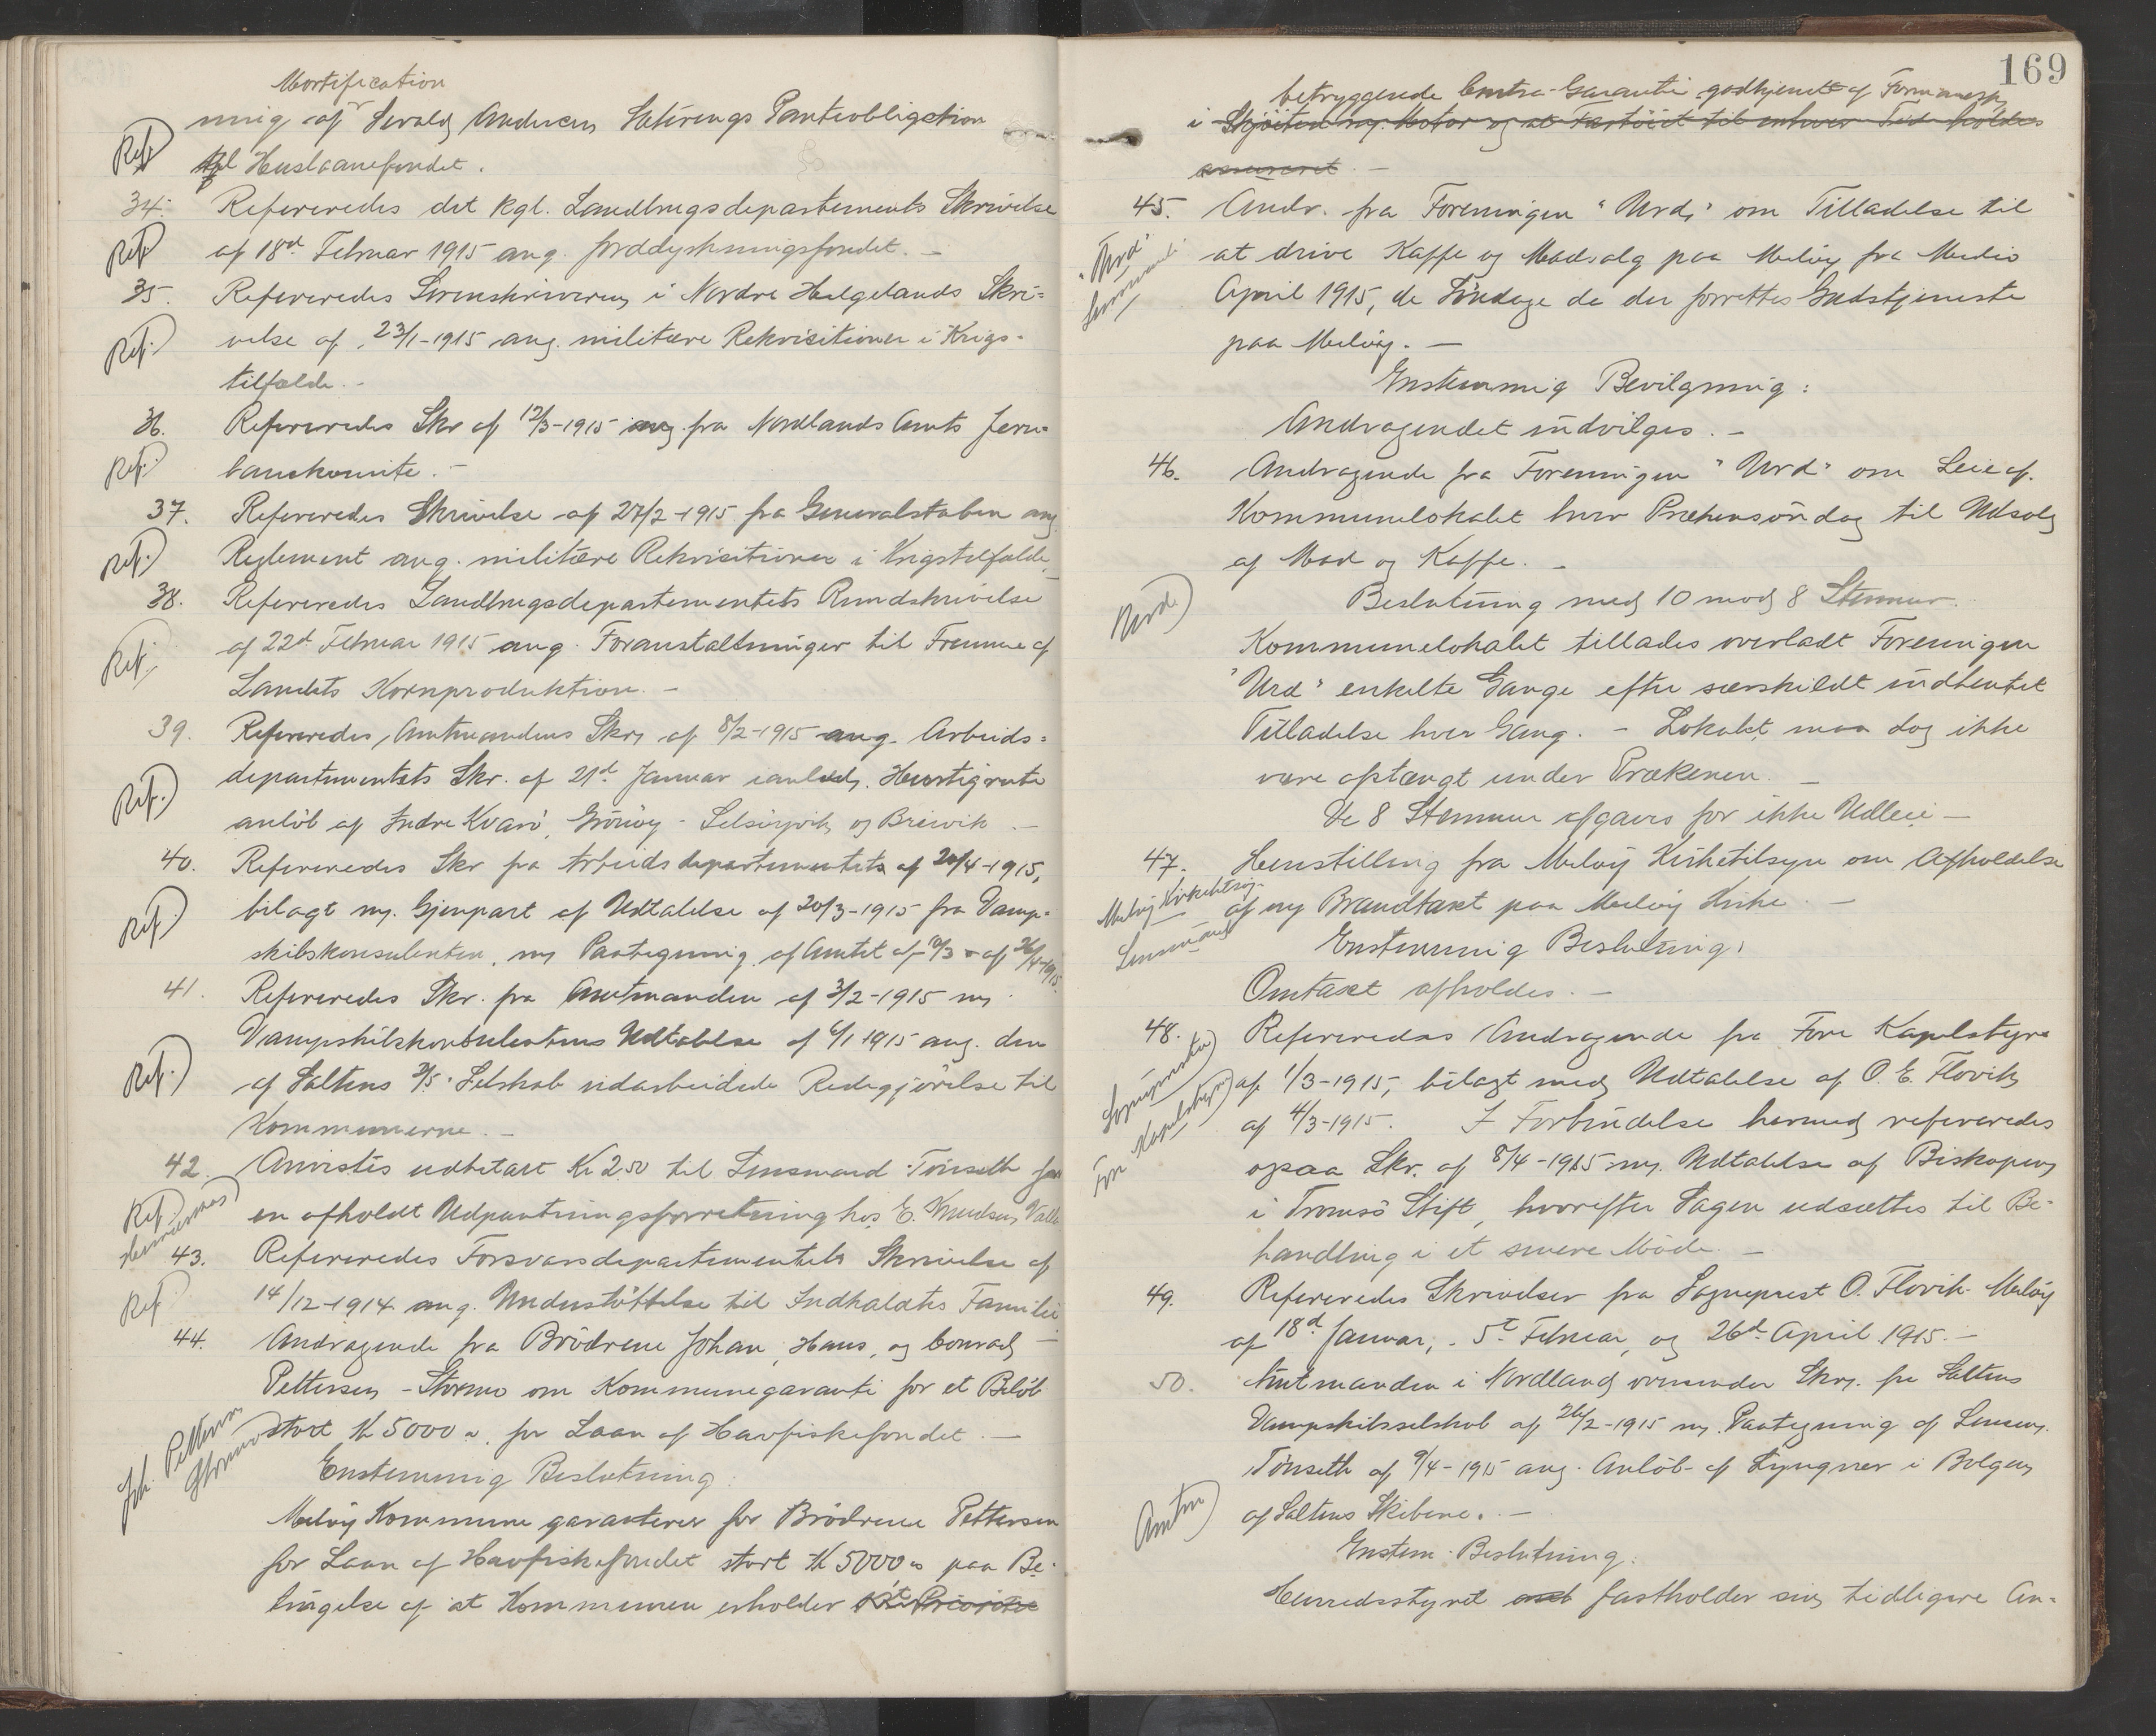 Mortification
ning af Sevald Andersens Sætrengs Panteobligation
Ref. til Huslaanefondet.
34. Refereredes det kgl. Landbrugsdepartements Skrivelse
Ref. af 18d Februar 1915 ang. jorddyrkningsfondet. –
35. Refereredes Sorenskriveren i Nordre Helgelands Skri-
Ref. velse af 23/1-1915 ang. militære Rekvisitioner i Krigs-
tilfælde. –
36. Refereredes Skr af 12/3-1915 ang. fra Nordlands Amts Jern-
Ref. banekomite. –
37. Refereredes Skrivelse af 27/2-1915 fra Generalstaben ang
Ref. Reglement ang. militære Rekvisitioner i Krigstilfælde. –
38. Refereredes Landbrugsdepartementets Rundskrivelse
Ref. af 22d Februar 1915 ang. Foranstaltninger til Fremme af
Landets Kornproduktion. –
39. Refereredes Amtmandens Skr. af 8/2-1915 ang. Arbeids-
Ref. departementets Skr. af 21d Januar ianledn. Hurtigrute
anløb af Indre Kvarø, Grönøy - Selsøyvik og Breivik –
40. Refereredes Skr fra Arbeidsdepartementets af 20/4-1915,
Ref. bilagt m. Gjenpart af Udtalelse af 20/3-1915 fra Damp-
skibskonsulenten, m Paategning af Amtet af /3 - af 26/4-1915.
41. Refereredes Skr. fra Amtmanden af 3/2-1915 m
Dampskibskonsulentens Udtalelse af 6/1 1915 ang. den
Ref. af Saltens D/S. Selskab udarbeidede Redegjörelse til
Kommunerne. –
42. Anvistes udbetalt Kr 2.50 til Lensmand Tönseth for
Ref. Herredskas en afholdt Udpantningsforretning hos E. Knudsen, Valla
43. Refereredes Forsvarsdepartementets Skrivelse af
Ref. 14/12-1914 ang. Understöttelse til Indkaldtes Familie –
44. Andragende fra Brödrene Johan, Hans, og Conrad
Pettersen - Stormo om Kommunegaranti for et Belöb
Joh. Pettersen Stormo stort Kr 5000 for Laan af Havfiskefondet. –
Enstemmig Beslutning:
Melöy Kommune garanterer for Brödrene Pettersen
for Laan af Havfiskefondet stort Kr 5000 paa Be-
tingelse af at Kommunen erholder 1st Prioritet
169
betryggende Contra-Garanti godkjendt af Formandsk.
i Skjöiten m. Motor og at Fartöiet til enhver Tid holdes
assureret. –
45. Andr. fra Foreningen "Urd" om Tilladelse til
"Urd" Lensmand at drive Kaffe og Madsalg paa Melöy fra Medio
April 1915, de Söndage da der forrettes Gudstjeneste
paa Melöy. –
Enstemmig Bevilgning:
Andragendet indvilges. –
46. Andragende fra Foreningen "Urd" om Leie af
Kommunelokalet hver Prækensöndag til Udsalg
af Mad og Kaffe. –
Urd Beslutning med 10 mod 8 Stemmer.
Kommunelokalet tillades overladt Foreningen
"Urd" enkelte Gange efter særskildt indhentet
Tilladelse hver Gang. – Lokalet maa dog ikke
være opstængt under Prækenen. –
De 8 Stemmer afgaves for ikke Udleie –
47. Henstilling fra Melöy Kirketilsyn om Afholdelse
Melöy Kirketilsyn Lensmand af ny Brandtaxt paa Melöy Kirke. –
Enstemmig Beslutning:
Omtaxt afholdes. –
48. Refereredes Andragende fra Fore Kapelstyre
Sogneprest Fore Kapelstyre af 1/3-1915, bilagt med Udtalelse af O. E. Flovik
af 4/3-1915. I Forbindelse hermed refereredes
ogsaa Skr. af 8/4-1915 m. Udtalelse af Biskopen
i Tromsö Stift, hvorefter Sagen udsættes til Be-
handling i et senere Möde. –
49. Refereredes Skrivelser fra Sogneprest O. Flovik Melöy
af 18d Januar, 5t Februar, og 26d April 1915. –
50. Amtmanden i Nordland oversender Skr. fra Saltens
Dampskibsselskab af 26/2-1915 m. Paategning af Lensm.
Tönseth af 9/4-1915 ang. Anlöb af Lyngvær i Bolgen
Amtm af Saltens Skibene. –
Enstem. Beslutning:
Herredsstyret fastholder sin tidligere An-